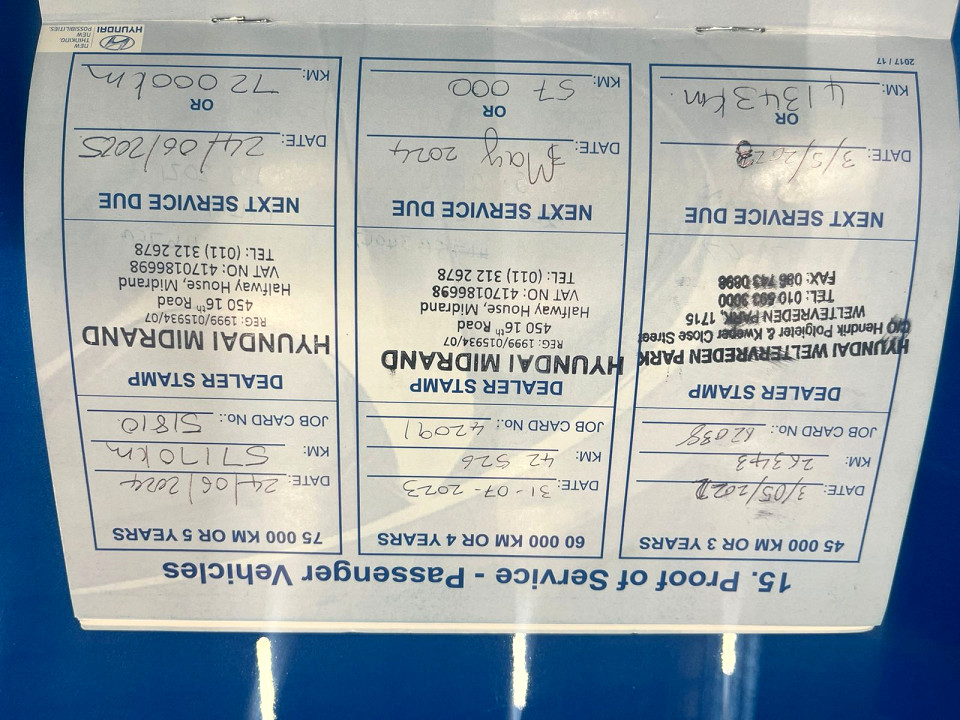 15. Proof of Service - Passenger Vehicles
45 000 KM OR 3 YEARS
DATE: 3/05/202
KM: 26343
JOB CARD No.: 62038
DEALER STAMP
HYUNDAI WELTERVREDEN PARK
C/O Hendrik Potgieter & Kweper Close Street
WELTEVREDEN PARK, 1715
TEL: 010 593 3000
FAX: 086 743 0898
NEXT SERVICE DUE
DATE: 3/5/202
OR
KM: 41343km.
60 000 KM OR 4 YEARS
DATE: 31-07-2023
KM: 42 526
JOB CARD No.: 42091
DEALER STAMP
HYUNDAI MIDRAND
REG: 1999/015934/07
450 16th Road
Halfway House, Midrand
VAT NO: 4170186698
TEL: (011) 312 2678
NEXT SERVICE DUE
DATE: 3 May 2024
OR
KM: 57 000
75 000 KM OR 5 YEARS
DATE: 24/06/2024
KM: 57170km
JOB CARD No.: 51810
DEALER STAMP
HYUNDAI MIDRAND
REG: 1999/015934/07
450 16th Road
Halfway House, Midrand
VAT NO: 4170186698
TEL: (011) 312 2678
NEXT SERVICE DUE
DATE: 24/06/2025
OR
KM: 72 000km
2017 / 17
HYUNDAI
NEW THINKING.
NEW POSSIBILITIES.